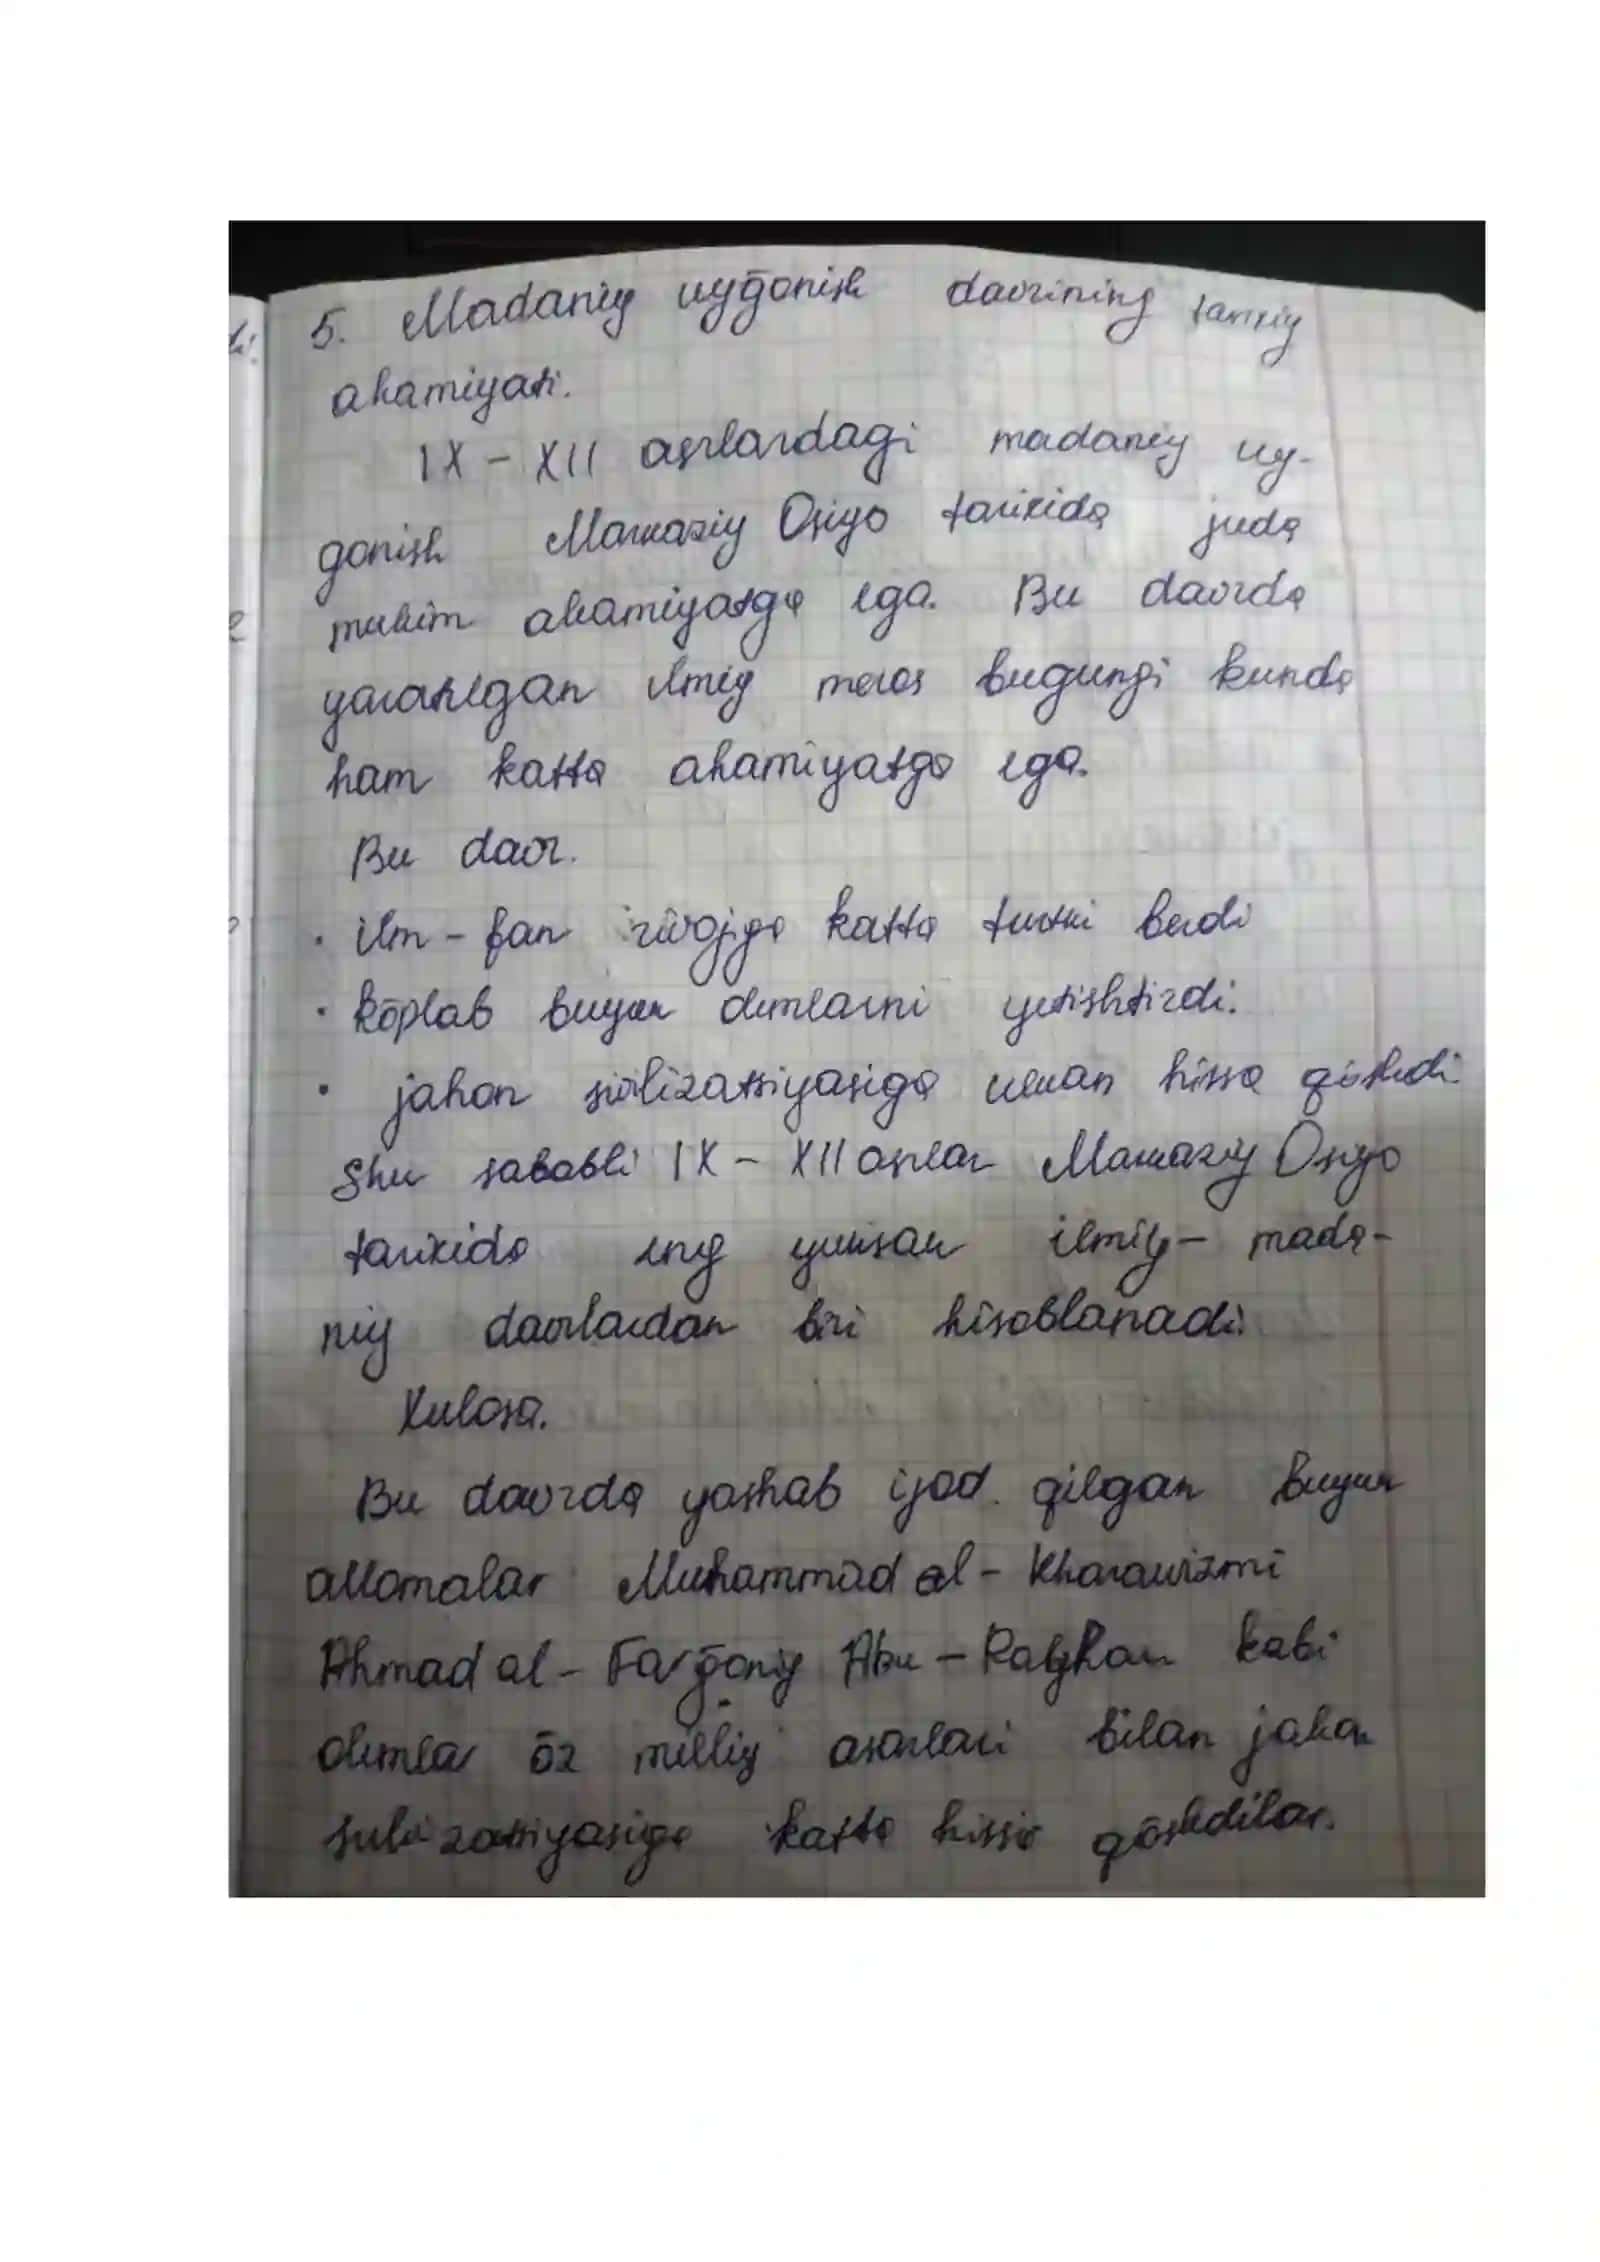 5. Madaniy uyḡonish davrining tarixiy
ahamiyati.
IX - XII asrlardagi madaniy uy-
gonish Markaziy Osiyo tarixida juda
muhim ahamiyatga ega. Bu davrda
yaratilgan ilmiy meros bugungi kunda
ham katta ahamiyatga ega.
Bu davr.
• ilm - fan rivojiga katta turtki berdi
• kōplab buyuk olimlarni yetishtirdi.
• jahon sivilizatsiyasiga ulkan hissa qōshdi.
Shu sababli IX - XII asrlar Markaziy Osiyo
tarixida eng yuksak ilmiy - mada-
niy davrlardan biri hisoblanadi.
Xulosa.
Bu davrda yashab ijod qilgan buyuk
allomalar Muhammad al - Kharawizmi
Ahmad al - Farḡoniy Abu - Rayhon kabi
olimlar ōz milliy asarlari bilan jahon
zatsiyasiga katta hissa qōshdilar.